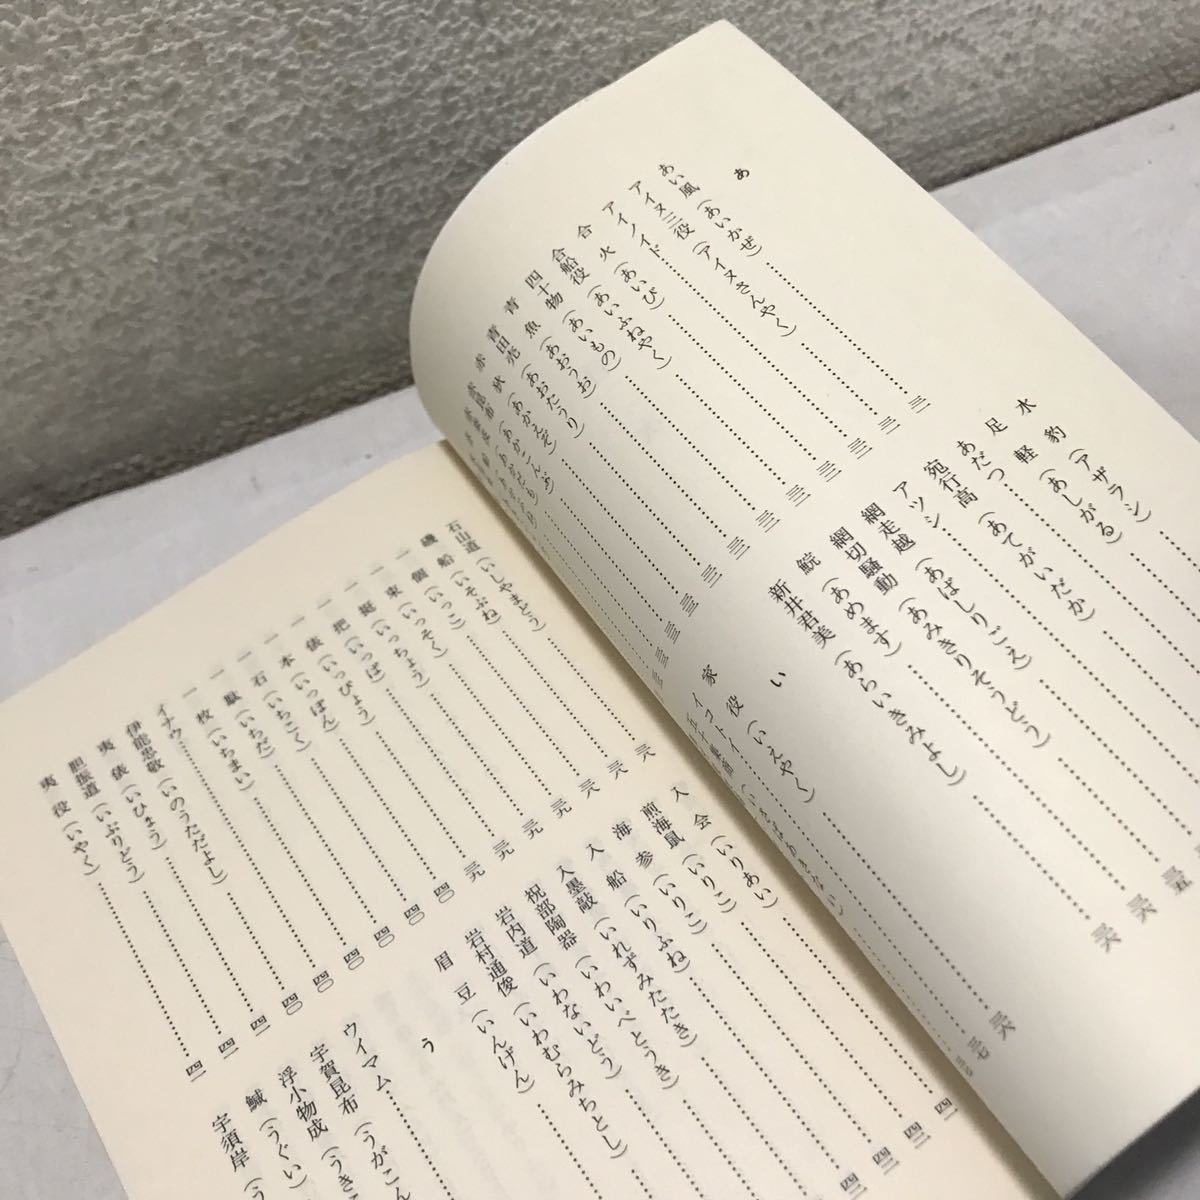 あ
あい風（あいかぜ）
アイヌ三役（アイヌさんやく）
アイノイド
合火（あいび）
合船役（あいふねやく）
四十物（あいもの）
青魚（あおうお）
青田売（あおたうり）
赤狄（あかえぞ）
赤昆布（あかこんぶ）
水豹（アザラシ）
足軽（あしがる）
あだつ
宛行高（あてがいだか）
アツシ
網走越（あばしりごえ）
網切騒動（あみきりそうどう）
鯇（あめます）
新井君美（あらいきみよし）……三六
い
家役（いえやく）……三六
イコトイ……三七
石山道（いしやまどう）……三八
磯船（いそぶね）……三八
一個（いっこ）……三八
一束（いっそく）……三九
一挺（いっちょう）……三九
一把（いっぱ）……三九
一俵（いっぴょう）……三九
一本（いっぽん）……四〇
一石（いちこく）……四〇
一駄（いちだ）……四〇
一枚（いちまい）……四〇
イナウ……四〇
伊能忠敬（いのうただよし）……四〇
夷俵（いひょう）……四一
胆振道（いぶりどう）……四一
夷役（いやく）……四一
入会（いりあい）……四一
煎海鼠（いりこ）……四二
海参（いりこ）……四二
入船（いりふね）……四二
入墨敲（いれずみたたき）
祝部陶器（いわいべとうき）
岩内道（いわないどう）
岩村通俊（いわむらみちとし）
眉豆（いんげん）
う
ウイマム
宇賀昆布（うがこん
浮小物成（うきこ
鯎（うぐい）
宇須岸（う